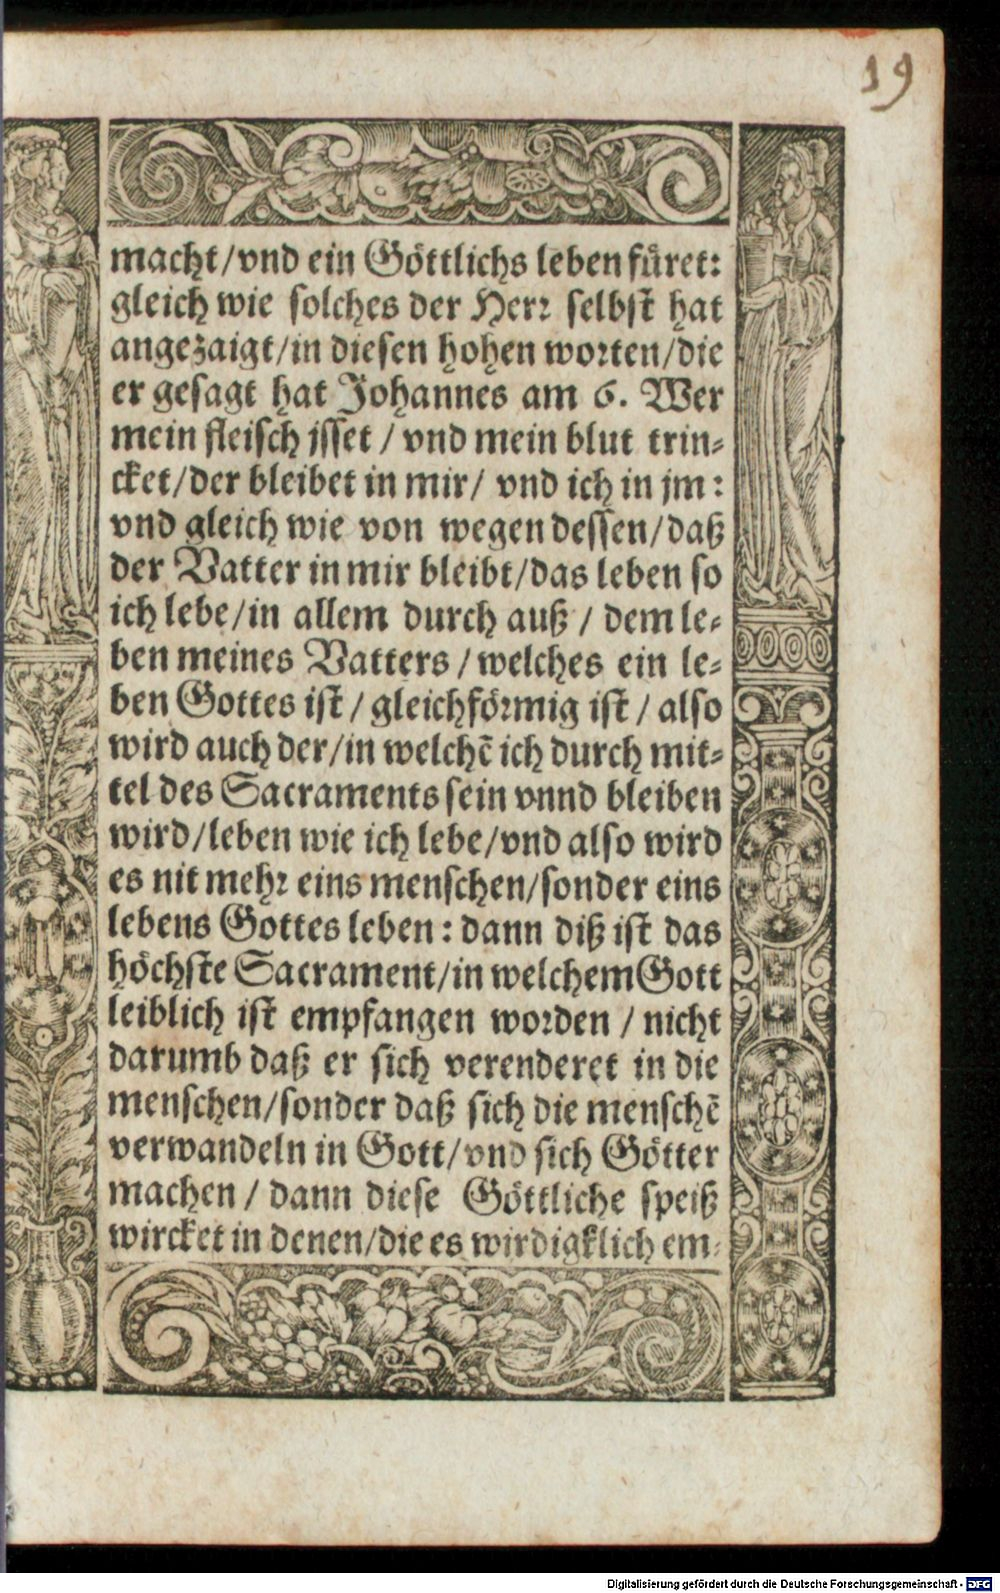 19
macht/vnd ein Göttlichs leben füret:
gleich wie solches der Herr selbst hat
angezaigt/in diesen hohen worten/die
er gesagt hat Johannes am 6. Wer
mein fleisch jsset / vnd mein blut trin-
cket/der bleibet in mir/ vnd ich in jm:
vnd gleich wie von wegen dessen/daß
der Vatter in mir bleibt/das leben so
ich lebe/in allem durch auß / dem le-
ben meines Vatters / welches ein le-
ben Gottes ist / gleichförmig ist / also
wird auch der/in welchẽ ich durch mit-
tel des Sacraments sein vnnd bleiben
wird/leben wie ich lebe/vnd also wird
es nit mehr eins menschen/sonder eins
lebens Gottes leben: dann diß ist das
höchste Sacrament/in welchem Gott
leiblich ist empfangen worden / nicht
darumb daß er sich verenderet in die
menschen/sonder daß sich die menschẽ
verwandeln in Gott/vnd sich Götter
machen / dann diese Göttliche speiß
wircket in denen/die es wirdigklich em-
Digitalisierung gefördert durch die Deutsche Forschungsgemeinschaft - DFG